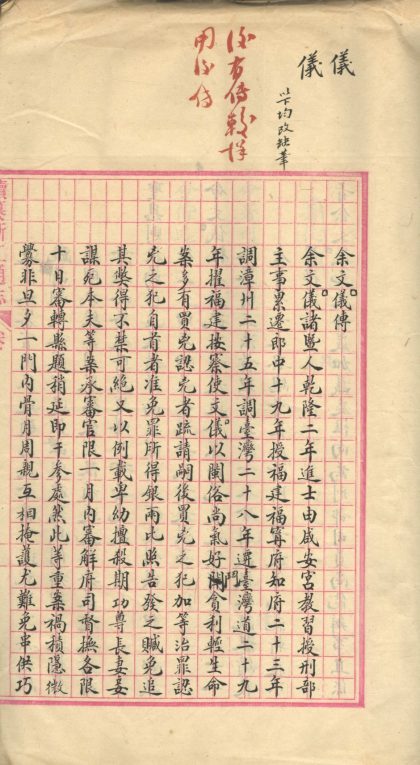 儀
儀
以下均改缺筆
後有傳較詳
用後傳
余文儀傳
余文儀諸暨人乾隆二年進士由咸安宮教習授刑部
主事累遷郎中十九年授福建福甯府知府二十三年
調漳州二十五年調臺灣二十八年遷臺灣道二十九
年擢福建按察使文儀以閩俗尚氣好鬥貪利輕生命
案多有買兇認兇者疏請嗣後買兇之犯加等治罪認
兇之犯自首者准免罪所得銀兩比照告發之贓免追
其弊得不禁可絕又以例載卑幼擅殺期功尊長妻妾
謀死本夫等案承審官限一月內審解府司督撫各限
十日審轉暨題稍延即干參處然此等重案禍積隱微
釁非旦夕一門內骨肉周親互相掩護尤難免串供巧